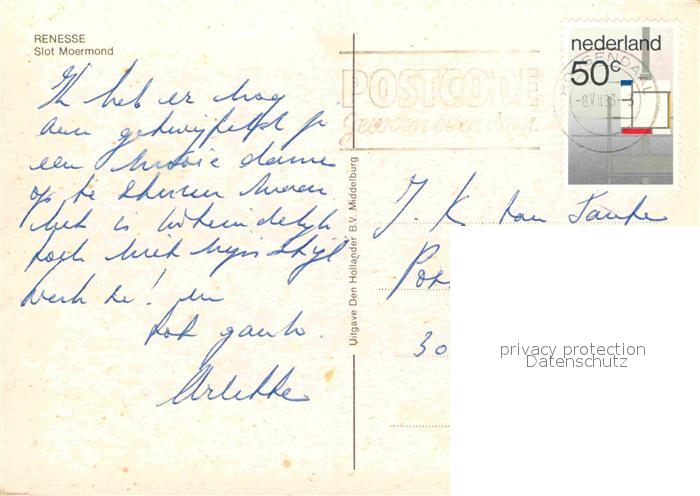 RENESSE
Slot Moermond
Ik heb er nog
aan getwijfeld je
een mooie dame
op te sturen maar
het is uiteindelijk
toch niet mijn stijl
en
tot gauw.
Arlette
Uitgave Den Hollander B.V. Middelburg
POSTCODE
gewoon even doen
nederland
50c
J. K. van
30
privacy protection
Datenschutz